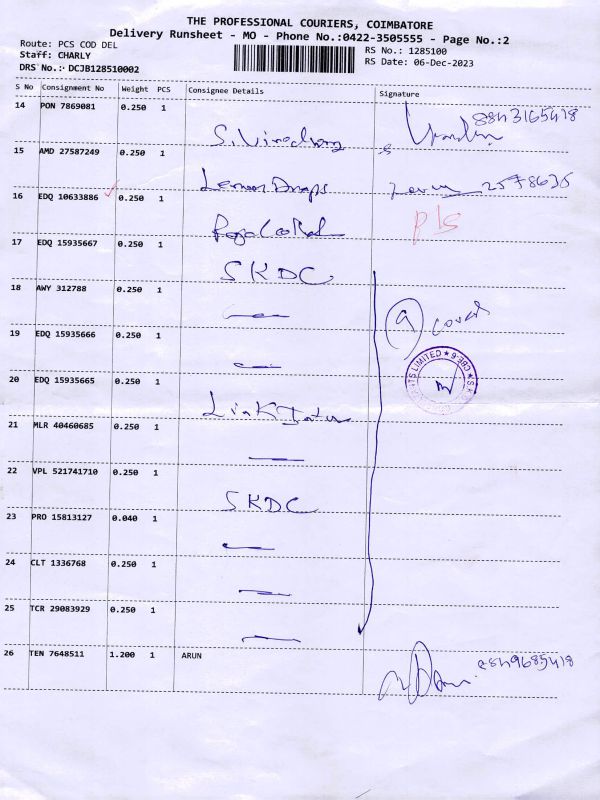 THE PROFESSIONAL COURIERS, COIMBATORE
Delivery Runsheet - MO - Phone No.:0422-3505555 - Page No.:2
Route: PCS COD DEL
RS No.: 1285100
Staff: CHARLY
RS Date: 06-Dec-2023
DRS No.: DCJB128510002
S No Consignment No Weight PCS Consignee Details Signature
14 PON 7869081 0.250 1 8843165418
15 AMD 27587249 0.250 1 Lemon Drops 2578635
16 EDQ 10633886 0.250 1
17 EDQ 15935667 0.250 1 SKDC
18 AWY 312788 0.250 1 9 cover
19 EDQ 15935666 0.250 1
20 EDQ 15935665 0.250 1 Link Intime
21 MLR 40460685 0.250 1
22 VPL 521741710 0.250 1 SKDC
23 PRO 15813127 0.040 1
24 CLT 1336768 0.250 1
25 TCR 29083929 0.250 1
26 TEN 7648511 1.200 1 ARUN
LIMITED ★ CBE-6 ★